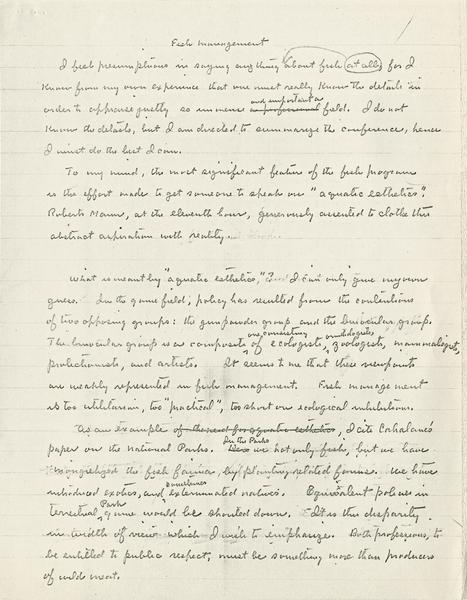 Fish Management
I feel presumptious in saying anything about fish at all, for I
know from my own experience that one must really know the details in
order to appraise justly so immense and important a professional field. I do not
know the details, but I am directed to summarize the conference, hence
I must do the best I can.
To my mind, the most significant feature of the fish program
is the effort made to get someone to speak on "aquatic esthetics".
Roberts Mann, at the eleventh hour, generously consented to clothe this
abstract aspiration with reality.
What is meant by "aquatic esthetics," I can only give my own
guess. In the game field, policy has resulted from the contentions
of two opposing groups: the gunpowder group and the binocular group.
The binocular group is a composite one consisting of ecologists, ornithologists, zoologists, mammalogists,
protectionists, and artists. It seems to me that these viewpoints
are weakly represented in fish management. Fish management
is too utilitarian, too "practical", too short on ecological inhibitions.
As an example of the need for aquatic esthetics, I cite Cahalane's
paper on the National Parks. In the Parks we not only fish, but we have
the fish fauna, by planting related forms. We have
introduced exotics, and sometimes exterminated natives. Equivalent policies in
terrestrial Park game would be shouted down. It is this disparity
in width of view which I wish to emphasize. Both professions, to
be entitled to public respect, must be something more than producers
of wild meat.